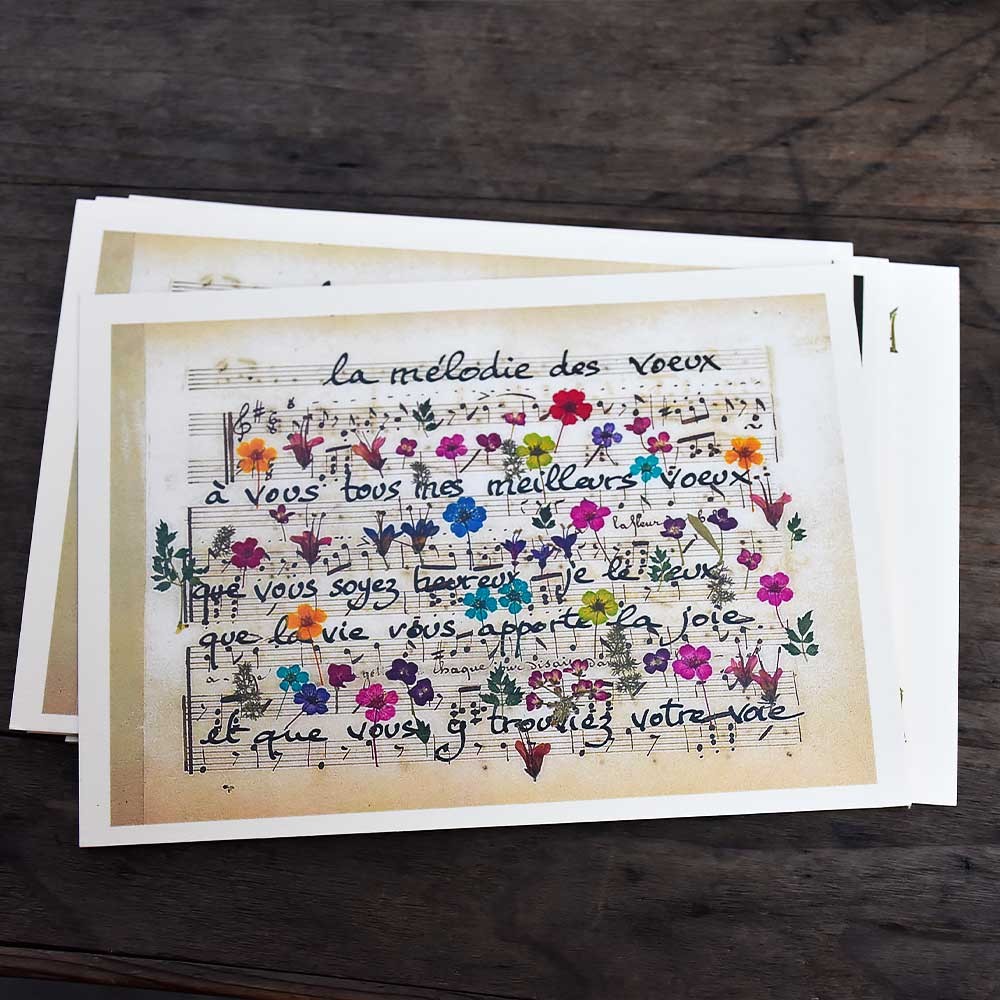 la mélodie des voeux
à vous tous mes meilleurs voeux
la fleur
que vous soyez heureux - je le veux
que la vie vous apporte la joie
chaque jour disait
et que vous y trouviez votre voie